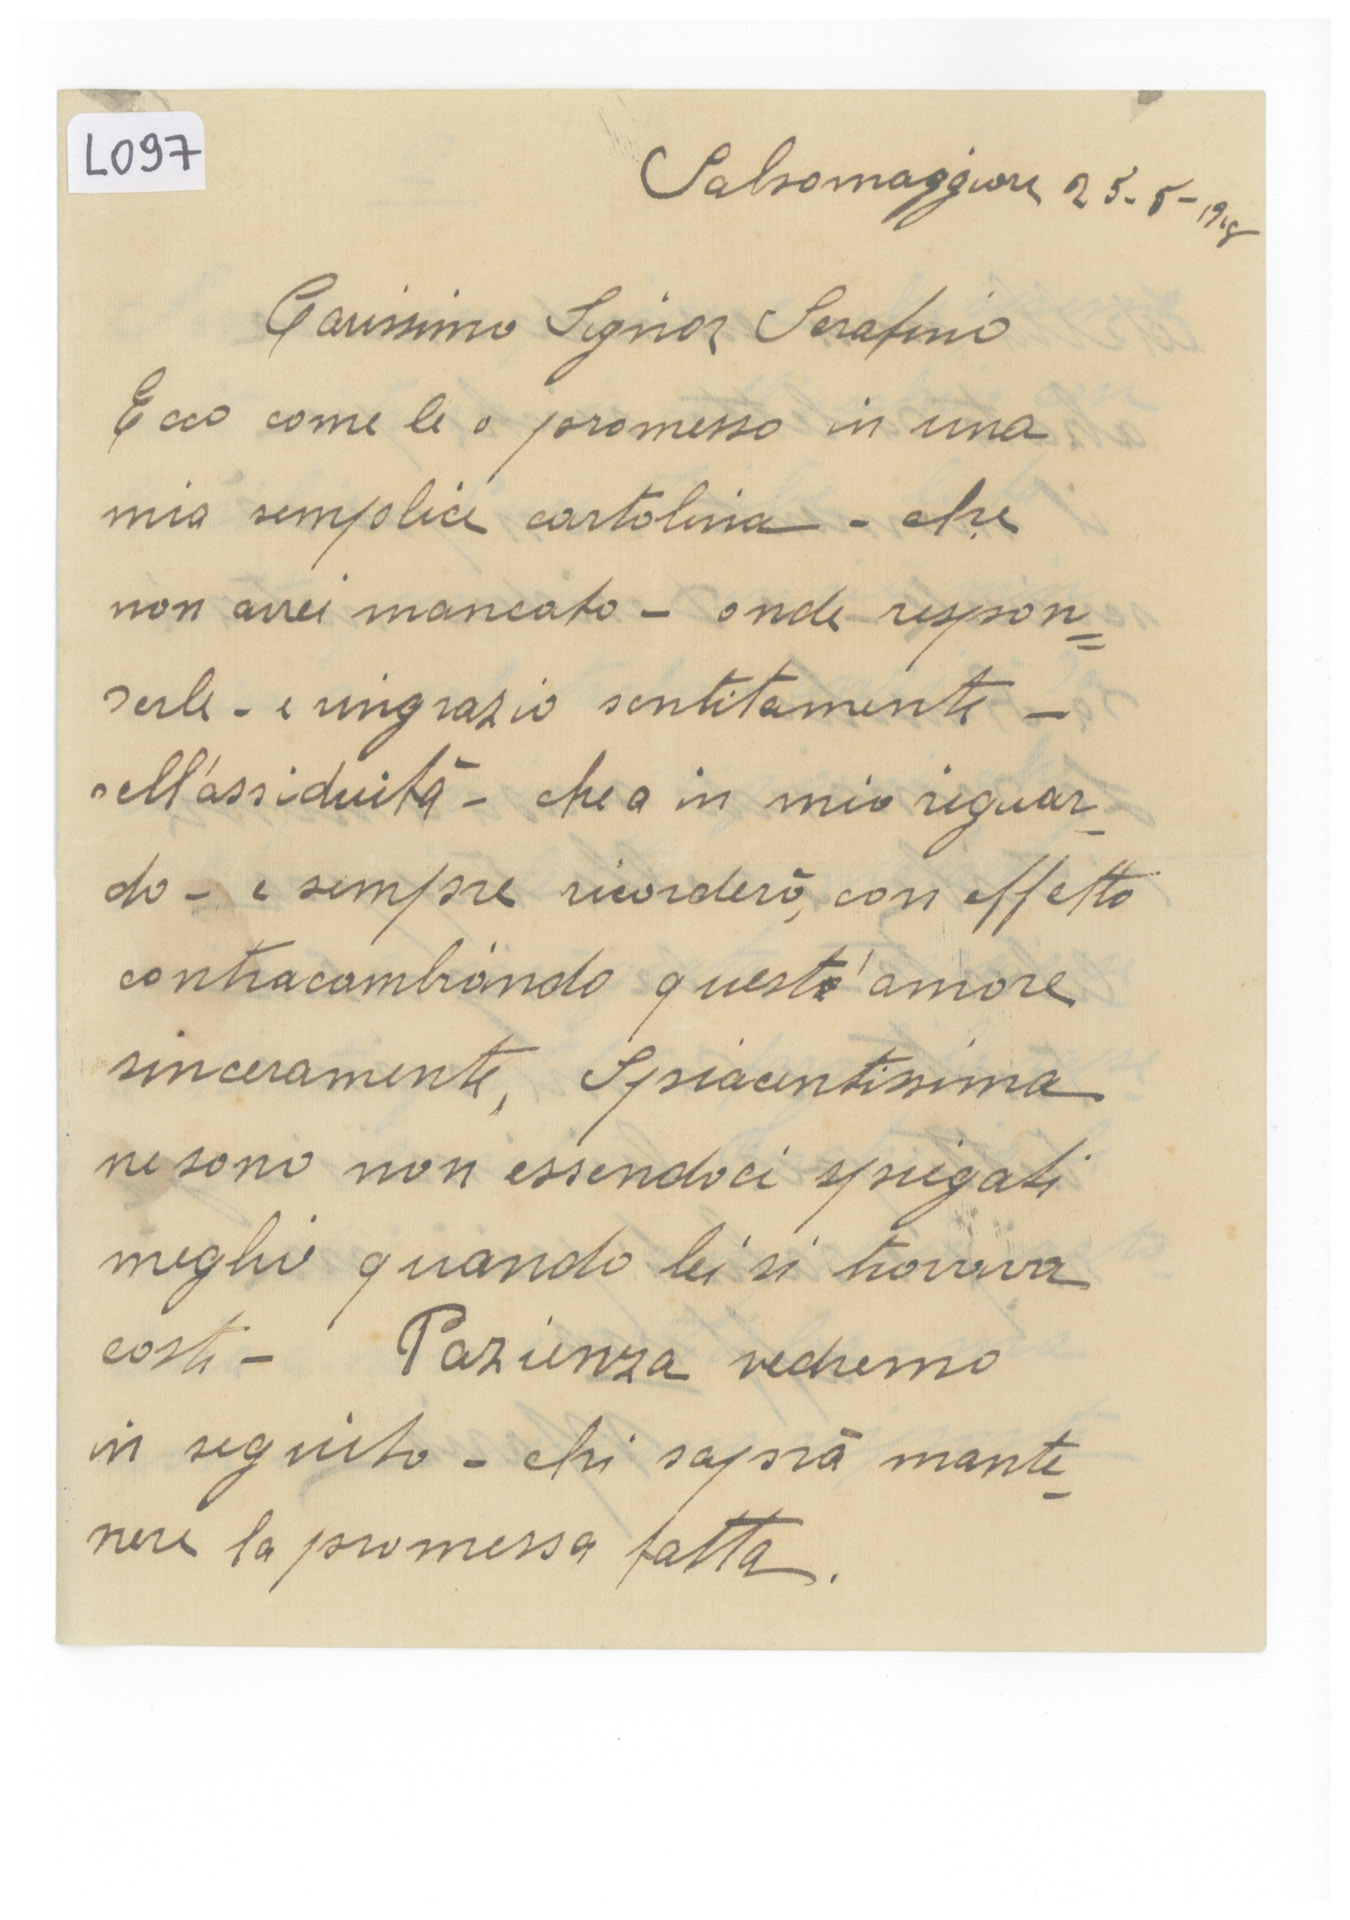 L097
Salsomaggiore 25-5-1918
Carissimo Signor Serafino
Ecco come le o promesso in una
mia semplice cartolina - che
non avrei mancato - onde respon=
derle - e ringrazio sentitamente -
dell'assiduità - che a in mio riguar-
do - e sempre ricorderò, con effetto
contracambiando quest'amore
sinceramente, Spiacentissima
ne sono non essendoci spiegati
meglio quando lei si trovava
costi - Pazienza vedremo
in seguito - chi saprà mante-
nere la promessa fatta.